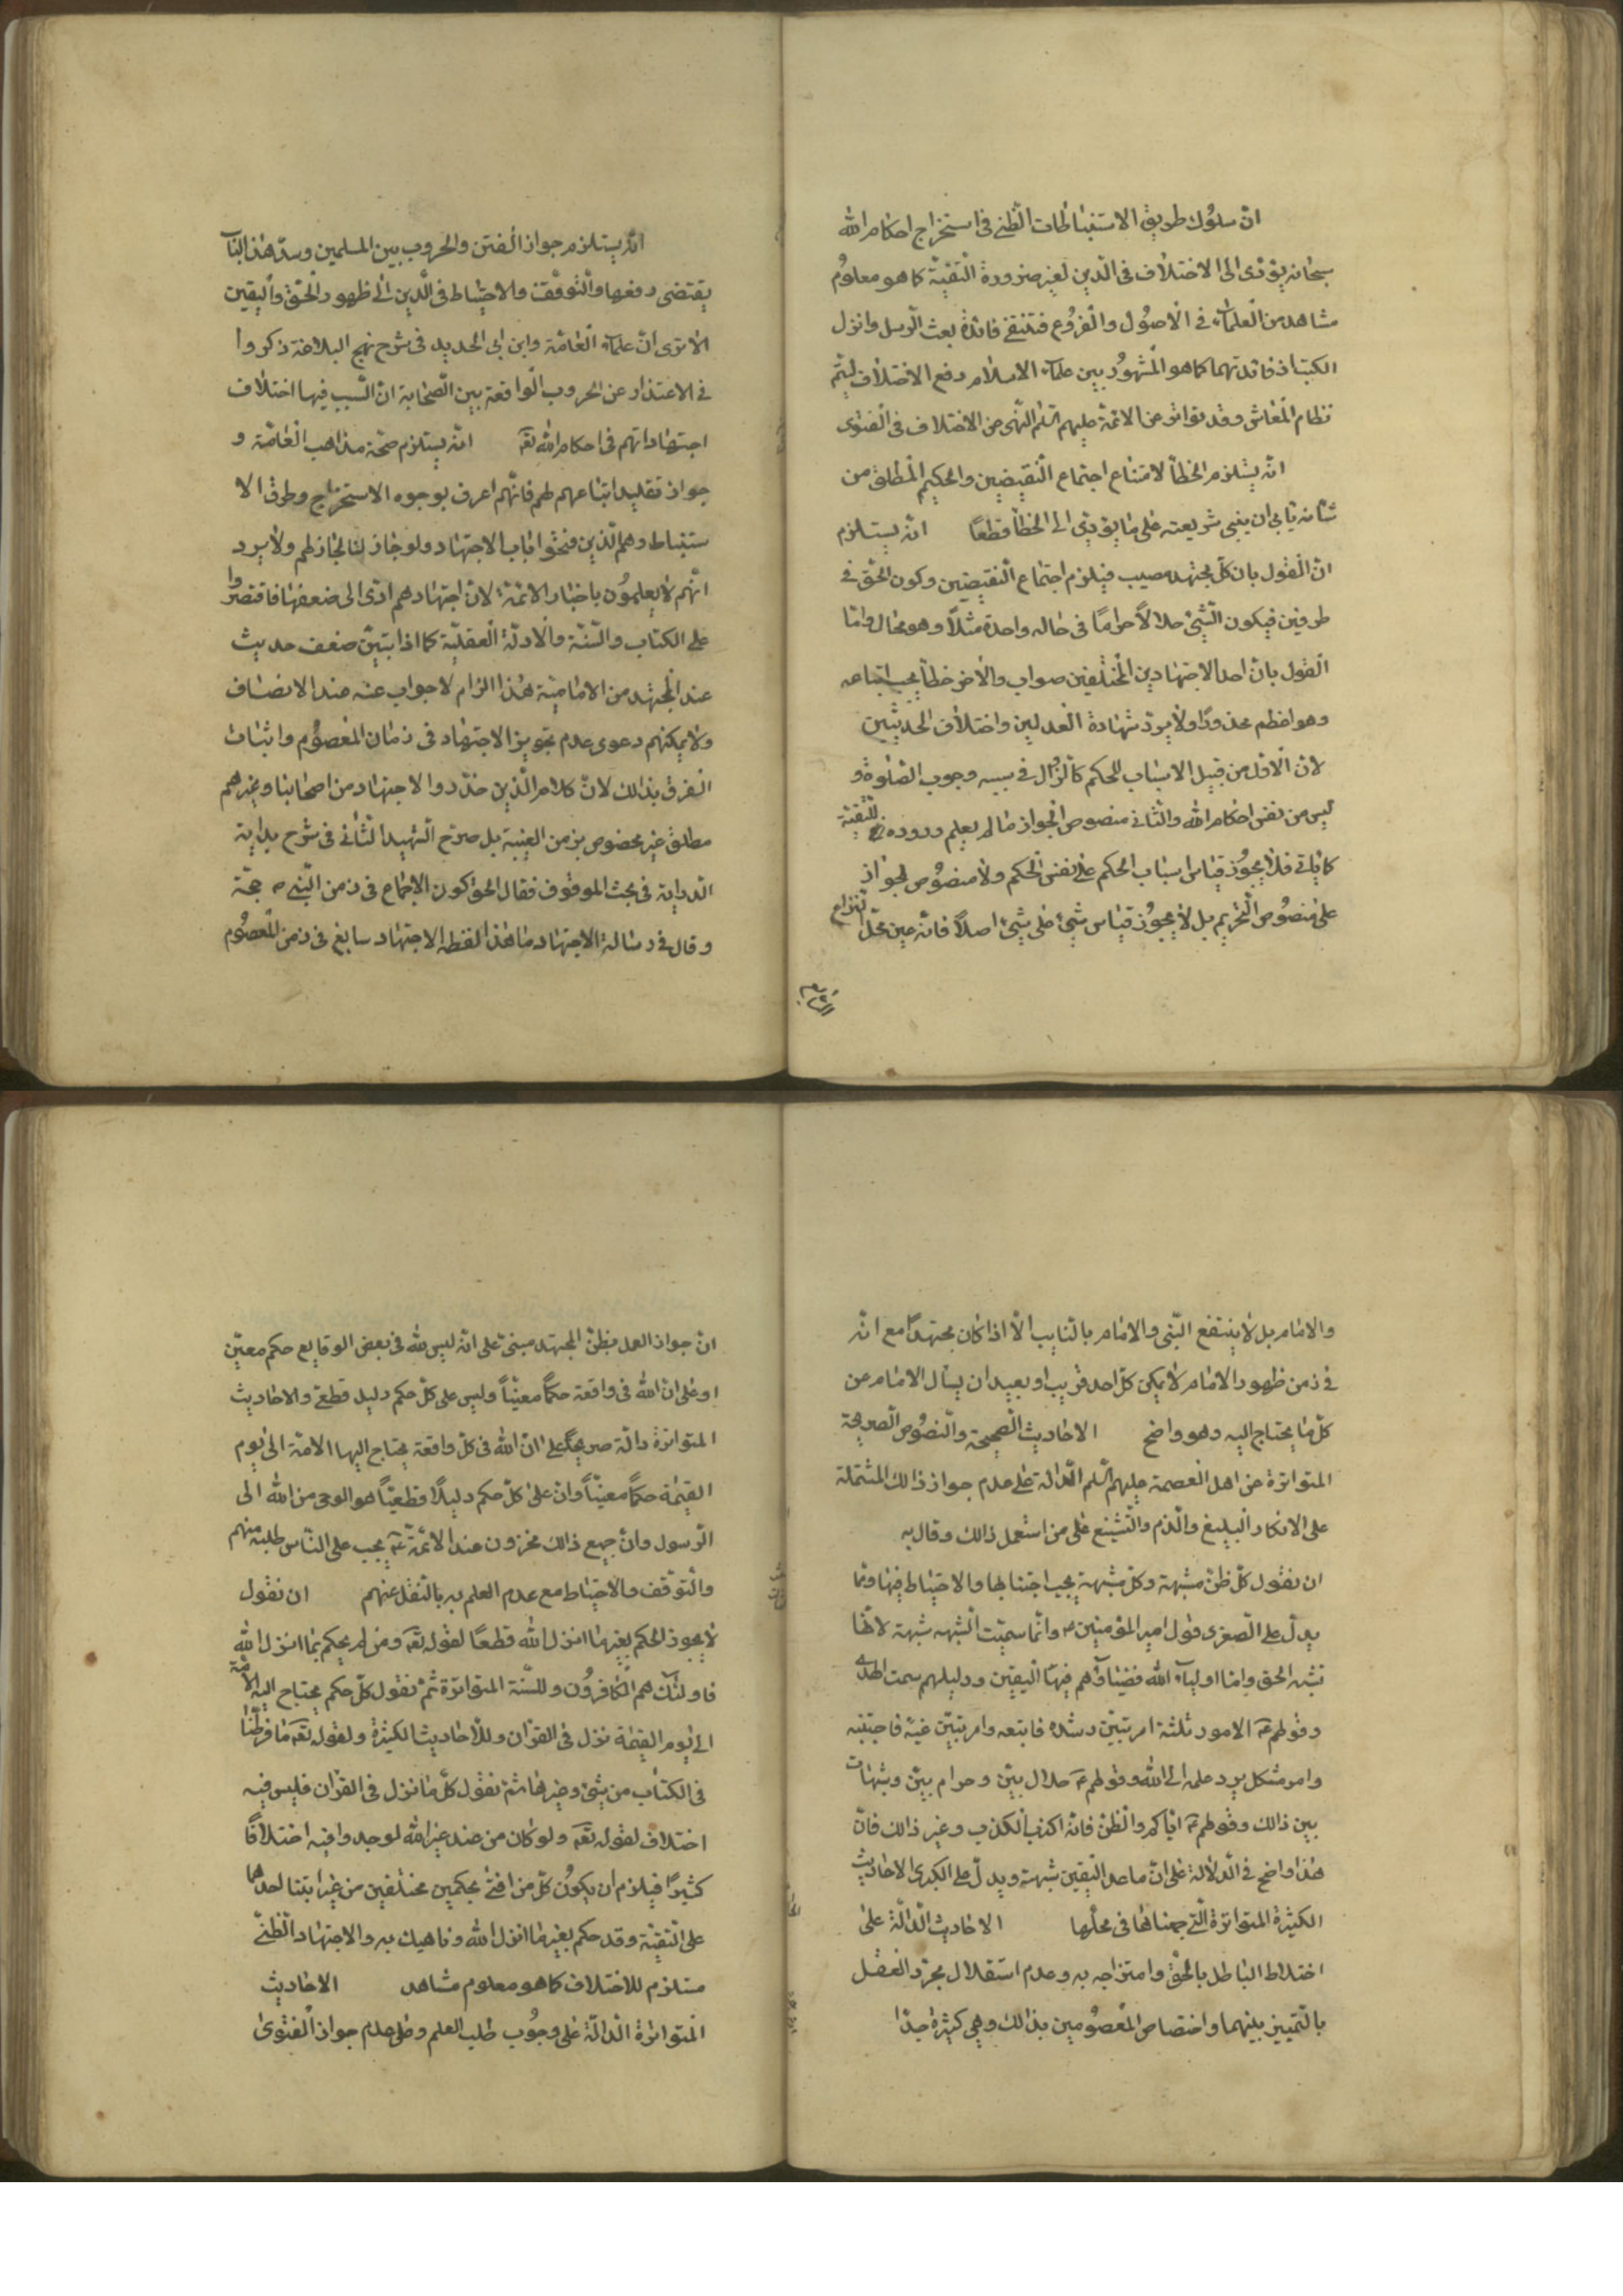 ان سلوك طريق الاستنباطات الظنّي في استخراج احكام الله
سبحانه يؤدى الى الاختلاف فى الدين لغير ضرورة التقيّة كما هو معلوم
مشاهد من العلماء في الاصول والفروع فتنتفي فائدة بعث الرسل وانزل
الكتب اذ فائدتهما كما هو المشهور بين علماء الاسلام رفع الاختلاف ليتم
نظام المعاش وقد تواتر عن الائمة عليهم السلم النهى عن الاختلاف فى الفتوى
انّه يستلزم الخطأ لامتناع اجتماع النقيضين والحكيم المطلق من
شانه يابى ان يبنى شريعته على ما يؤدي الى الخطأ قطعًا انه يستلزم
انّ القول بان كلّ مجتهد مصيب فيلزم اجتماع النقيضين وكون الحقّ في
طرفين فيكون الشئ حلالاً حرامًا فى حاله واحدة مثلاً وهو محال وامّا
القول بانّ احد الاجتهادين المختلفين صواب والأخر خطأ يجب اتباعه
وهو اعظم محذورًا ولا يرد شهادة العدلين واختلاف الحديثين
لانّ الاوّل من قبيل الاسباب للحكم كالزوال في سببه وجوب الصلوة و
ليس من نفس احكام الله والثانى منصوص الجواز ما لم يعلم وروده للتقيّة
كما ياتي فلا يجوز قياس اسباب الحكم على نفس الحكم ولا منصوص الجواز
على منصوص التحريم بل لا يجوز قياس شئ على شئ اصلاً فانّه عين محلّ النزاع
انّه يستلزم جواز الفتن والحروب بين المسلمين وسدّ هذا الباب
يقتضى دفعها والتوقّف والاحتياط فى الدين الى ظهور الحقّ واليقين
الا ترى انّ علماء العامّة وابن ابى الحديد فى شرح نهج البلاغة ذكروا
فى الاعتذار عن الحروب الواقعة بين الصحابة انّ السبب فيها اختلاف
اجتهاداتهم فى احكام الله تعه انّه يستلزم صحّة مذاهب العامّة و
جواز تقليد اتباعهم لهم فانّهم اعرف بوجوه الاستخراج وطرق الا
ستنباط وهم الذين فتحوا باب الاجتهاد ولو جاز لنا لجاز لهم ولا يرد
انّهم لا يعلمون باخبار الائمة لانّ اجتهادهم ادّى الى ضعفها فاقتصروا
على الكتاب والسنّة والادلّة العقليّة كما اذا تبيّن ضعف حديث
عند المجتهد من الاماميّة هذا الزام لا جواب عنه عند الانصاف
ولا يمكنهم دعوى عدم تجويز الاجتهاد فى زمان المعصوم واثبات
الفرق بذلك لانّ كلام الذين حدّدوا الاجتهاد من اصحابنا وغيرهم
مطلق غير مخصوص بزمن الغيبة بل صرّح الشهيد الثانى فى شرح بداية
الدراية فى بحث الموقوف فقال الحق كون الاجماع فى زمن النبى ص حجّة
وقال فى رسالة الاجتهاد ما هذا لفظه الاجتهاد سايغ فى زمن المعصوم
والامام بل لا ينتفع النبى والامام بالنايب الّا اذا كان مجتهدًا مع انّه
فى زمن ظهور الامام لا يمكن كلّ احد قريب او بعيد ان يسأل الامام عن
كلّ ما يحتاج اليه وهو واضح الاحاديث الصحيحة والنصوص الصريحة
المتواترة عن اهل العصمة عليهم السلم الدالة على عدم جواز ذالك المشتملة
على الانكار البليغ والذم والتشنيع على من استعمل ذالك وقال به
ان نقول كلّ ظنّ شبهة وكلّ شبهة يجب اجتنابها والاحتياط فيها وممّا
يدلّ على الصغرى قول امير المؤمنين ع وانّما سميّت الشبهه شبهة لانّها
تشبه الحق وامّا اولياء الله فضياؤهم فيها اليقين ودليلهم سمت الهدى
وقولهم ع الامور ثلثة امر تبيّن رشده فاتبعه وامر تبيّن غيّه فاجتنبه
وامر مشكل يرد علمه الى الله وقولهم ع حلال بيّن وحرام بيّن وشبهات
بين ذالك وقولهم ع ايّاكم والظنّ فانّه اكذب الكذب وغير ذالك فانّ
هذا واضح فى الدلالة على انّ ما عدا اليقين شبهة ويدلّ على الكبرى الاحاديث
الكثيرة المتواترة التى جمعناها فى محلّها الاحاديث الدالّة على
اختلاط الباطل بالحقّ وامتزاجه به وعدم استقلال مجرّد العقل
بالتّمييز بينهما واختصاص المعصومين بذالك وهي كثيرة جدّا
انّ جواز العمل بظنّ المجتهد مبنىّ على انّه ليس لله فى بعض الوقايع حكم معيّن
او على ان لله فى واقعة حكماً معيّناً وليس على كلّ حكم دليل قطعى والاحاديث
المتواترة دالّة صريحاً على انّ لله فى كلّ واقعة يحتاج اليها الامّة الى يوم
القيمة حكماً معيّناً وانّ على كلّ حكم دليلاً قطعيّاً هو الوحى من الله الى
الرّسول وانّ جميع ذالك مخزون عند الائمّة ع يجب على النّاس طلبه منهم
والتوقّف والاحتياط مع عدم العلم به بالنّقل عنهم ان نقول
لا يجوز الحكم بغير ما انزل الله قطعًا لقوله تعه ومن لم يحكم بما انزل الله
فاولئك هم الكافرون وللسنّة المتواترة ثمّ نقول كلّ حكم يحتاج اليه الامّة
الى يوم القيمة نزل فى القرآن وللأحاديث الكثيرة ولقوله تعه ما فرطنا
فى الكتاب من شئ وغيرها ثمّ نقول كلّ ما نزل فى القرآن فليس فيه
اختلاف لقوله تعه ولو كان من عند غير الله لوجدوا فيه اختلافًا
كثيرًا فيلزم ان يكون كلّ من افتى بحكمين مختلفين من غير ابتناء احدهما
على التقيّة وقد حكم بغير ما انزل الله وناهيك به والاجتهاد الظنّي
مستلزم للاختلاف كما هو معلوم مشاهد الاحاديث
المتواترة الدالّة على وجوب طلب العلم وعلى عدم جواز الفتوى